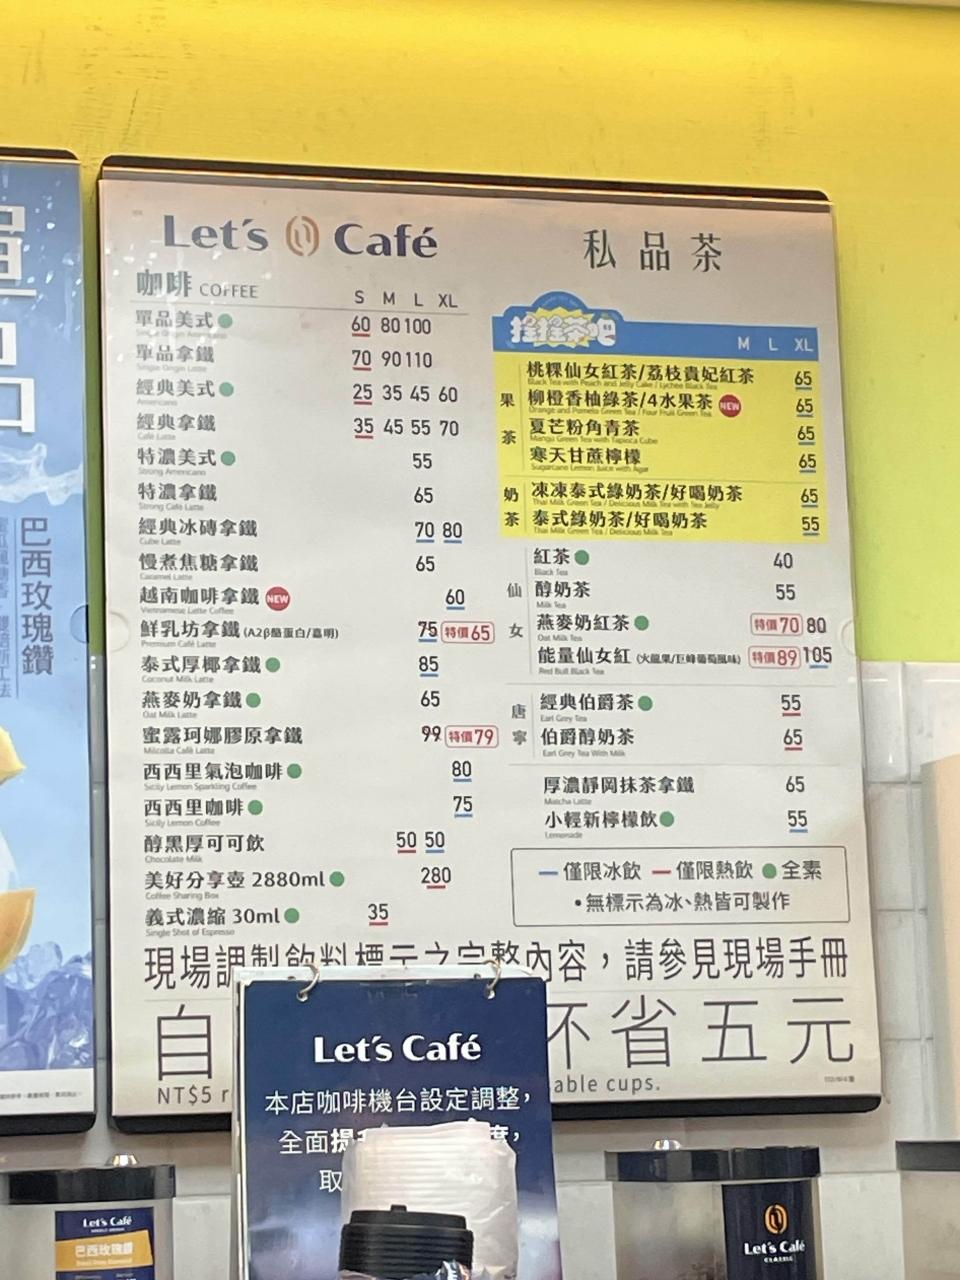 Let's Café
咖啡 COFFEE
S M L XL
單品美式 60 80 100
Single Origin Americano
單品拿鐵 70 90 110
Single Origin Latte
經典美式 25 35 45 60
Americano
經典拿鐵 35 45 55 70
Café Latte
特濃美式 55
Strong Americano
特濃拿鐵 65
Strong Café Latte
經典冰磚拿鐵 70 80
Cube Latte
慢煮焦糖拿鐵 65
Caramel Latte
越南咖啡拿鐵 NEW 60
Vietnamese Latte Coffee
鮮乳坊拿鐵 (A2β酪蛋白/嘉明) 75 特價65
Premium Café Latte
泰式厚椰拿鐵 85
Coconut Milk Latte
燕麥奶拿鐵 65
Oat Milk Latte
蜜露珂娜膠原拿鐵 99 特價79
Milcolla Café Latte
西西里氣泡咖啡 80
Sicily Lemon Sparkling Coffee
西西里咖啡 75
Sicily Lemon Coffee
醇黑厚可可飲 50 50
Chocolate Milk
美好分享壺 2880ml 280
Coffee Sharing Box
義式濃縮 30ml 35
Single Shot of Espresso
私品茶
搖搖茶吧
M L XL
果茶
桃粿仙女紅茶/荔枝貴妃紅茶 65
Black Tea with Peach and Jelly Cake / Lychee Black Tea
柳橙香柚綠茶/4水果茶 NEW 65
Orange and Pomelo Green Tea / Four Fruit Green Tea
夏芒粉角青茶 65
Mango Green Tea with Tapioca Cube
寒天甘蔗檸檬 65
Sugarcane Lemon Juice with Agar
奶茶
凍凍泰式綠奶茶/好喝奶茶 65
Thai Milk Green Tea / Delicious Milk Tea with Tea Jelly
泰式綠奶茶/好喝奶茶 55
Thai Milk Green Tea / Delicious Milk Tea
仙女
紅茶 40
Black Tea
醇奶茶 55
Milk Tea
燕麥奶紅茶 特價70 80
Oat Milk Tea
能量仙女紅 (火龍果/巨峰葡萄風味) 特價89 105
Red Bull Black Tea
唐寧
經典伯爵茶 55
Earl Grey Tea
伯爵醇奶茶 65
Earl Grey Tea With Milk
厚濃靜岡抹茶拿鐵 65
Matcha Latte
小輕新檸檬飲 55
Lemonade
僅限冰飲 僅限熱飲 全素
•無標示為冰、熱皆可製作
現場調製飲料標示之完整內容，請參見現場手冊
自 不省五元
NT$5 able cups.
巴西玫瑰鑽
Let's Café
本店咖啡機台設定調整，
全面提
取
Let's Café
巴西玫瑰鑽
Let's Café
CLASSIC